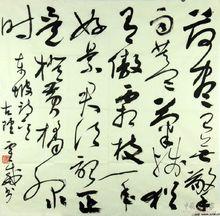 荷尽已无擎
雨盖菊残犹
有傲霜枝一年
好景君须记正
是橙黄橘绿
时
东坡诗